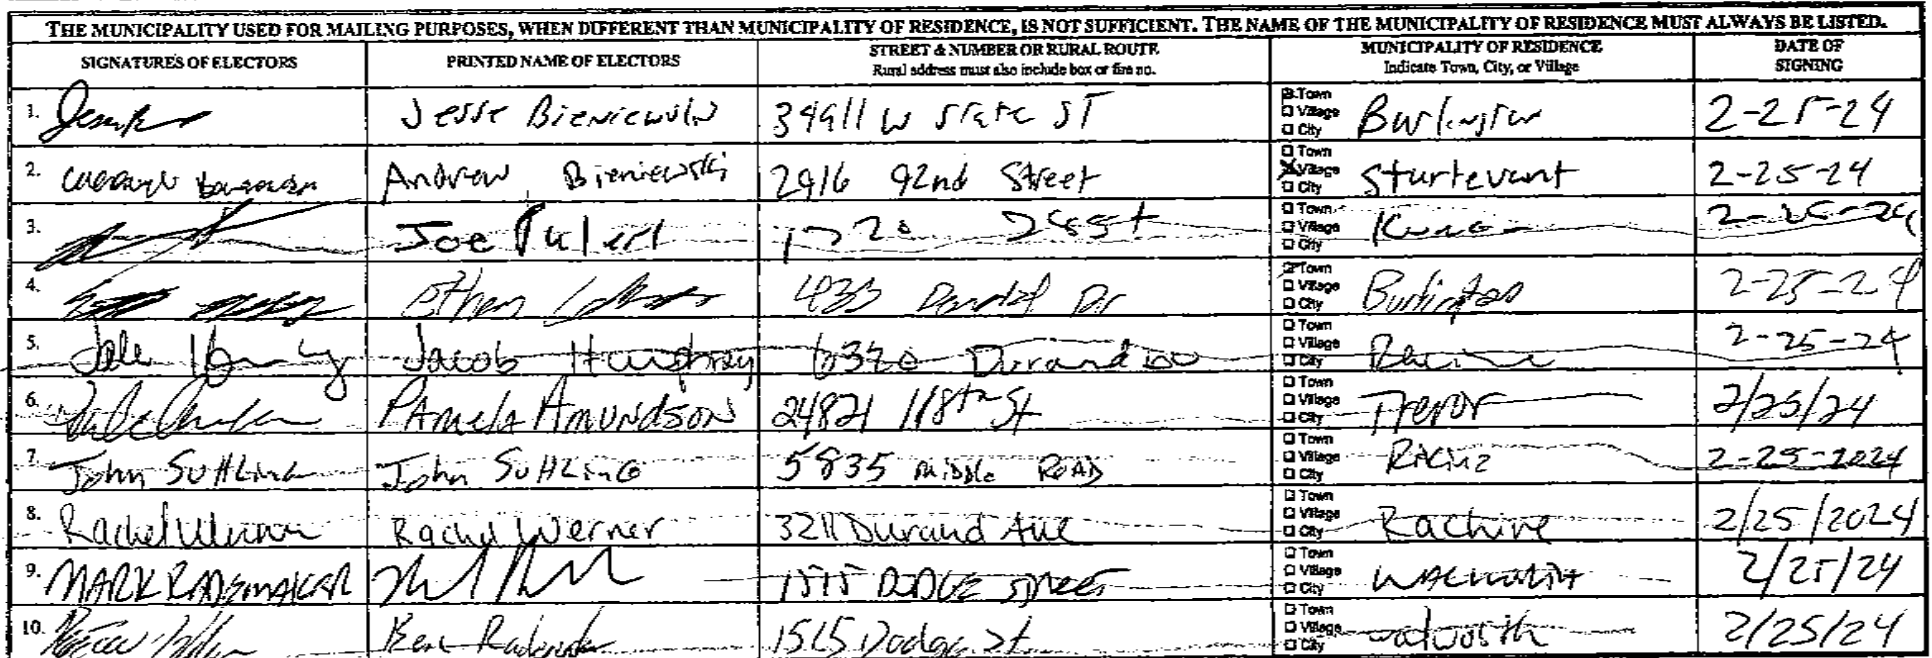 THE MUNICIPALITY USED FOR MAILING PURPOSES, WHEN DIFFERENT THAN MUNICIPALITY OF RESIDENCE, IS NOT SUFFICIENT. THE NAME OF THE MUNICIPALITY OF RESIDENCE MUST ALWAYS BE LISTED.
SIGNATURES OF ELECTORS PRINTED NAME OF ELECTORS STREET & NUMBER OR RURAL ROUTE MUNICIPALITY OF RESIDENCE DATE OF
Rural address must also include box or fire no. Indicate Town, City, or Village SIGNING
1. Jesse 34911 W State ST Town Village City Burlington 2-25-24
2. Andrew Bieniewski 2916 92nd Street Town Village City Sturtevant 2-25-24
3. Joe Town Village City 2-25-24
4. Ethan 433 Dr Town Village City Burlington 2-25-24
5. Jacob Humphrey 6320 Durand Town Village City Racine 2-25-24
6. PAmelA AmUNDSON 24821 118th St Town Village City Trevor 2/25/24
7. John SUHLING John SUHLING 5835 middle ROAD Town Village City 2-25-2024
8. Rachel Werner Rachel Werner 3211 Durand Ave Town Village City Rachine 2/25/2024
9. MARK RADEMAKER STREET Town Village City 2/25/24
10. Ben 1515 Dodge St Town Village City walworth 2/25/24